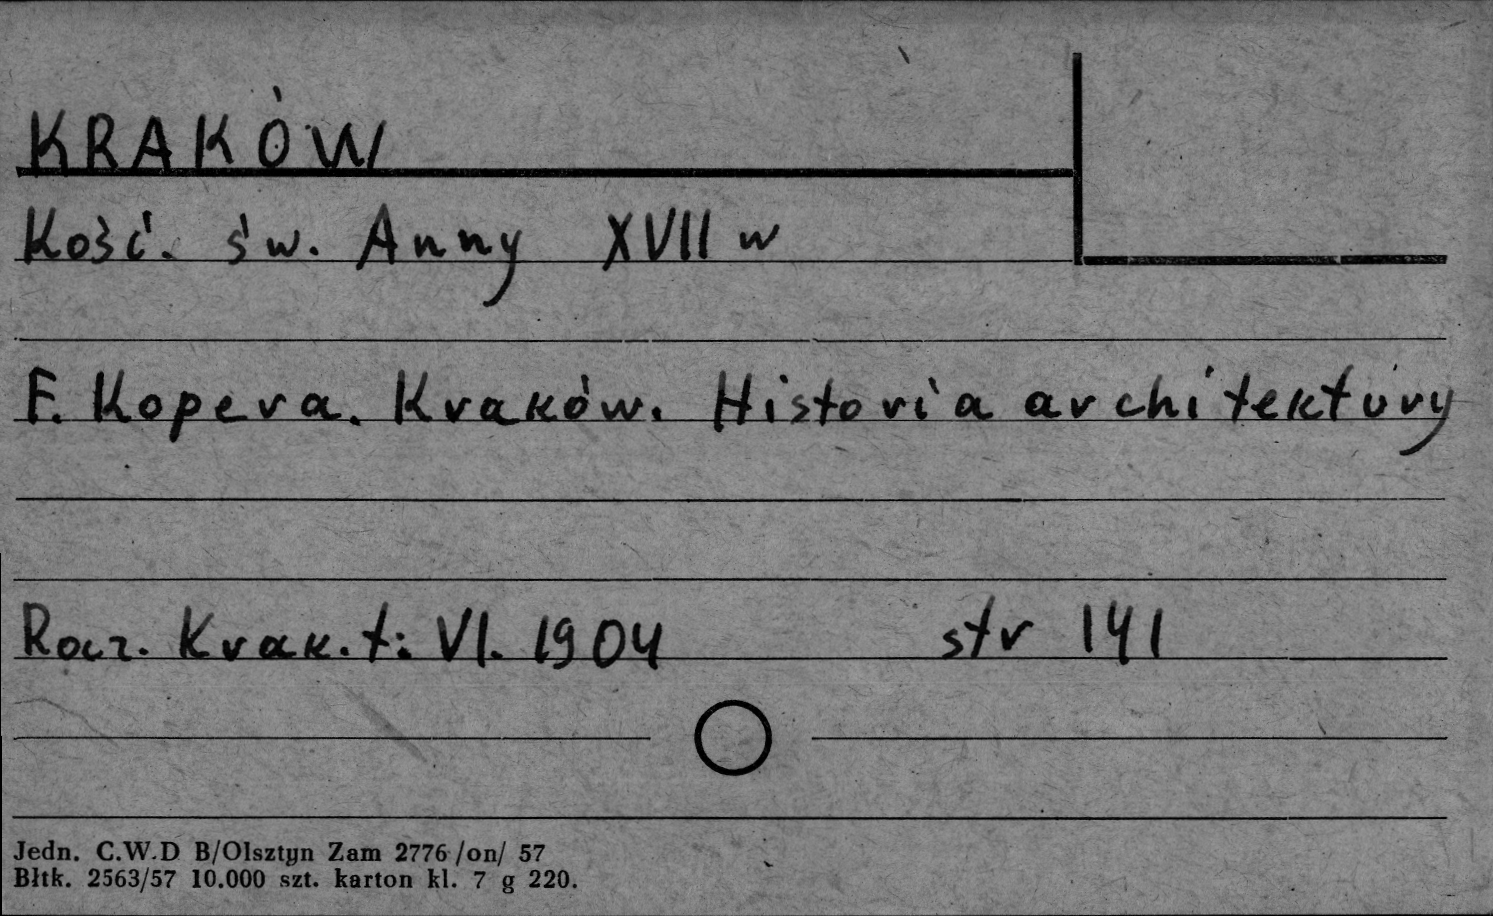 KRAKÓW
Kość. św. Anny XVII w
F. Kopera. Kraków. Historia architektury
Rocz. Krak. t: VI. 1904 str 141
Jedn. C.W.D B/Olsztyn Zam 2776 /on/ 57
Błtk. 2563/57 10.000 szt. karton kl. 7 g 220.